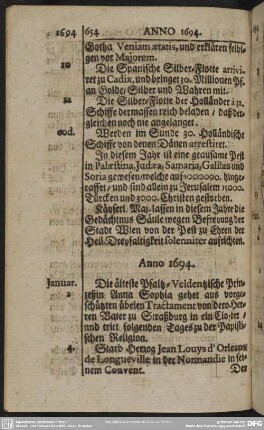 1694 654 ANNO 1694.
Gotha Veniam ætatis, und erklären selbi-
gen vor Majorem.
20 Die Spanische Silber-Flotte arrivi-
ret zu Cadix, und bringet 30. Millionen Pf.
an Golde, Silber und Wahren mit.
Die Silber-Flotte der Holländer à 12.
Schiffe dermassen reich beladen, daß der-
gleichen noch nie angelanget.
eod. Werden im Sunde 30. Holländische
Schiffe von denen Dänen arrestiret.
In diesem Jahr ist eine grausame Pest
in Palæstina, Judæa, Samaria, Galilæa und
Soria gewesen, welche auf 1000000. hinge-
raffet, und sind allein zu Jerusalem 15000.
Türcken und 3000. Christen gestorben.
Käyserl. Maj. lassen in diesem Jahre die
Gedächtnus Säule wegen Befreyung der
Stadt Wien von der Pest zu Ehren der
Heil. Dreyfaltigkeit solenniter aufrichten.
Anno 1694.
Januar. Die älteste Pfaltz-Veldentzische Prin-
zeßin Anna Sophia gehet aus vorge-
schützten übeln Tractament von dero Her-
ren Vater zu Straßburg in ein Closter,
und tritt folgenden Tages zu der Papisti-
schen Religion.
4. Starb Hertzog Jean Louys d'Orleans
de Longueville in der Normandie in sei-
nem Convent.
Der